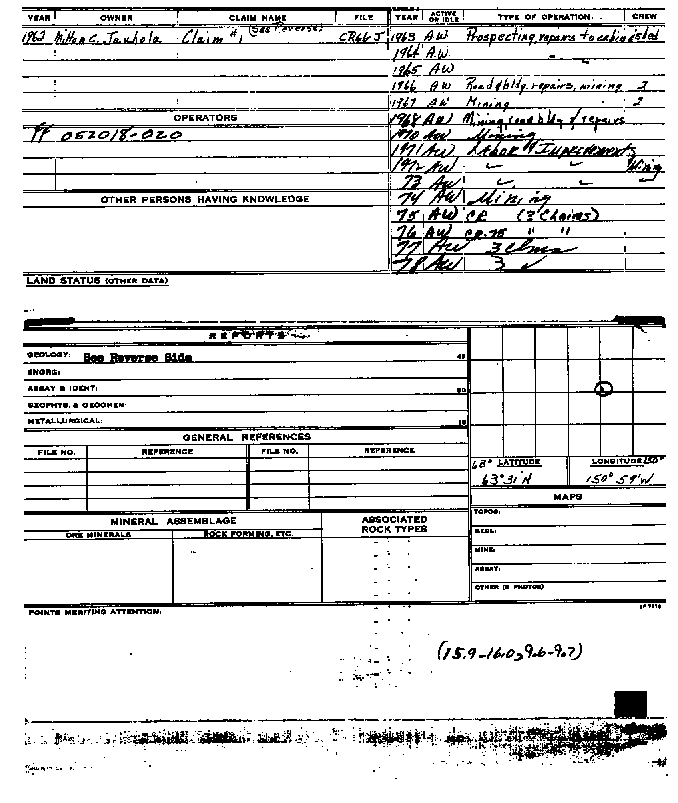 YEAR OWNER CLAIM NAME FILE YEAR ACTIVE OR IDLE TYPE OF OPERATION CREW
(See Reverse)
1963 Milton C. Claim #1 CR66J 1963 AW Prospecting, repairs to cabin
1964 AW " "
1965 AW
1966 AW Road bldg, repairs, mining 2
1967 AW Mining 2
OPERATORS 1968 AW Mining, road bldg & repairs
PF 052018-020 1970 AW Mining
1971 AW LABOR & Improvements
1972 AW " " Mining
73 AW " " "
OTHER PERSONS HAVING KNOWLEDGE 74 AW Mining
75 AW CR (3 Claims)
76 AW CR-75 " "
77 AW 3 clms
78 AW 3 ✓
LAND STATUS (OTHER DATA)
REPORTS
GEOLOGY: See Reverse Side
SHORE:
ASSAY & IDENT:
GEOPHYS. & GEOCHEM:
METALLURGICAL:
GENERAL REFERENCES
FILE NO. REFERENCE FILE NO. REFERENCE
LATITUDE LONGITUDE
63°31'N 150°59'W
MAPS
MINERAL ASSEMBLAGE ASSOCIATED ROCK TYPES
ORE MINERALS ROCK FORMING, ETC.
TOPOG:
GEOL:
MINE:
ASSAY:
OTHER (& PHOTOS)
POINTS MERITING ATTENTION:
(15.9-16.0, 9.6-9.7)